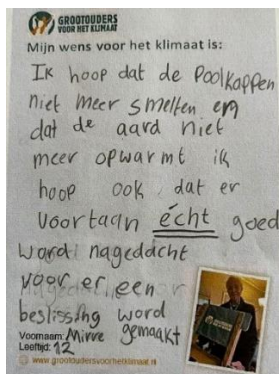 GROOTOUDERS
VOOR HET KLIMAAT
Mijn wens voor het klimaat is:
Ik hoop dat de Poolkappen
niet meer smelten en
dat de aard niet
meer opwarmt ik
hoop ook dat er
voortaan écht goed
word nagedacht
voor er een
beslissing word
gemaakt
Voornaam: Minne
Leeftijd: 12
www.grootoudersvoorhetklimaat.nl